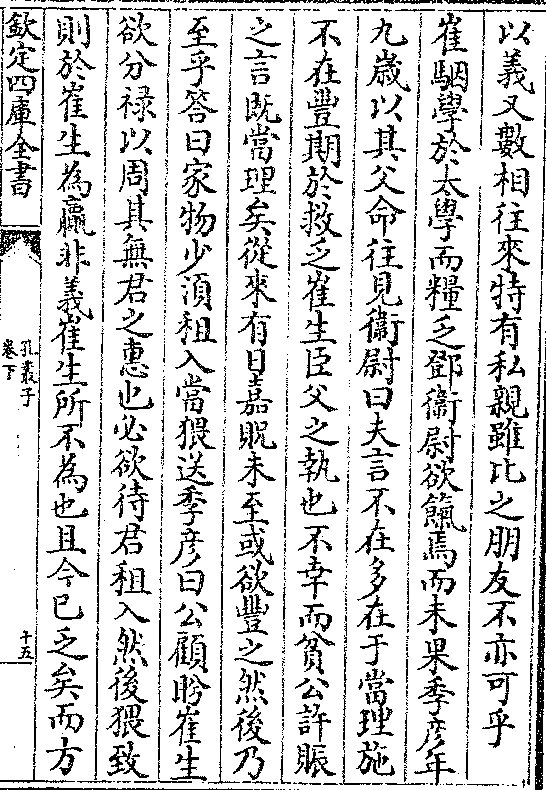 以義又數相往來特有私親雖比之朋友不亦可乎
崔駰學於太學而糧乏鄧衛尉欲餼焉而未果季彦年
九歲以其父命往見衛尉曰夫言不在多在于當理施
不在豐期於救乏崔生臣父之執也不幸而貧公許賑
之言既當理矣從來有日嘉貺未至或欲豐之然後乃
至乎答曰家物少須租入當猥送季彦曰公顧盼崔生
欲分禄以周其無君之惠也必欲待君租入然後猥致
則於崔生為贏非義崔生所不為也且今已乏矣而方
欽定四庫全書
孔叢子
卷下
十五